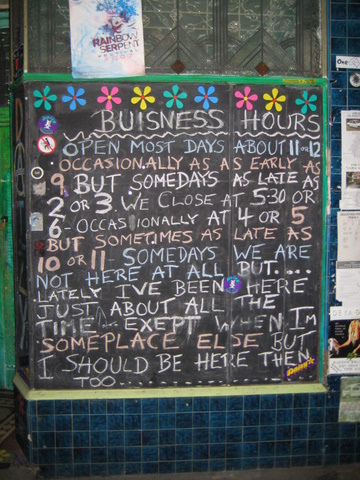 RAINBOW
SERPENT
BUISNESS HOURS
OPEN MOST DAYS ABOUT 11 OR 12
OCCASIONALLY AS AS EARLY AS
9 BUT SOMEDAYS AS LATE AS
2 OR 3. WE CLOSE AT 530 OR
6 - OCCASIONALLY AT 4 OR 5
BUT SOMETIMES AS LATE AS
10 OR 11 - SOMEDAYS WE ARE
NOT HERE AT ALL BUT....
LATELY I'VE BEEN HERE
JUST ABOUT ALL THE
TIME - EXEPT WHEN I'M
SOMEPLACE ELSE BUT
I SHOULD BE HERE THEN
TOO